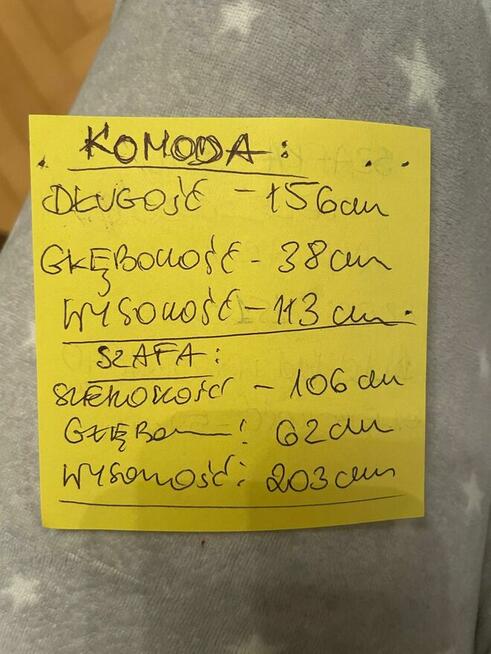 KOMODA:
DŁUGOŚĆ - 156cm
GŁĘBOKOŚĆ - 38cm
WYSOKOŚĆ - 113 cm.
SZAFA:
SZEROKOŚĆ - 106 cm
GŁĘBO : 62cm
WYSOKOŚĆ: 203cm